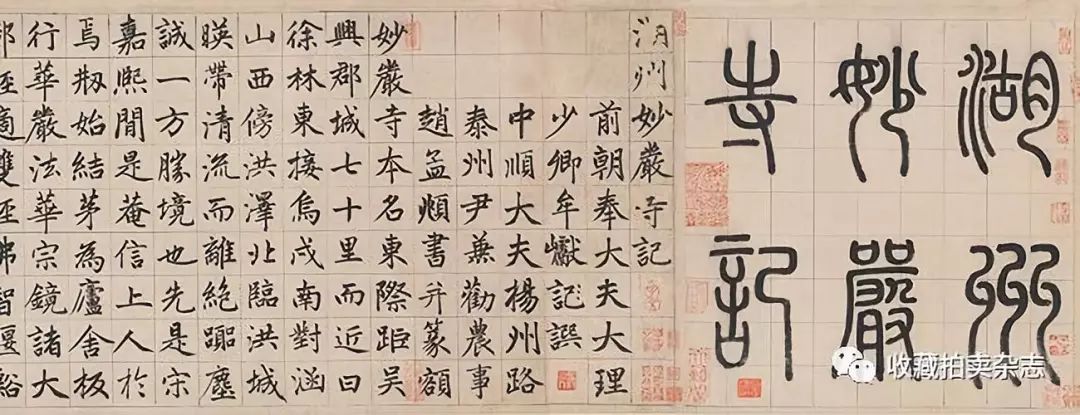 湖州
妙嚴
寺記
湖州妙嚴寺記
前朝奉大夫大理
少卿牟巘記譔
中順大夫楊州路
泰州尹兼勸農事
趙孟頫書并篆額
妙嚴寺本名東際距吳
興郡城七十里而近曰
徐林東接烏戍南對涵
山西傍洪澤北臨洪城
暎帶清流而離絕囂塵
誠一方勝境也先是宋
嘉熙間是菴信上人於
焉刱始結茅為廬舍板
行華嚴法華宗鏡諸大
部經適雙徑佛智偃谿
收藏拍卖杂志